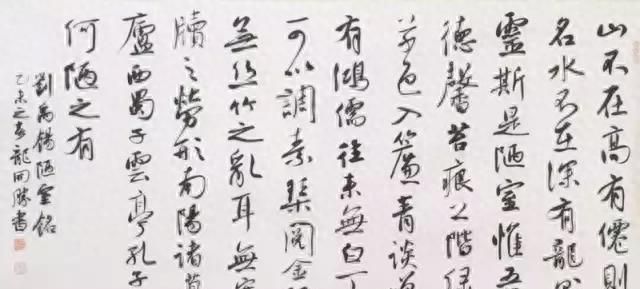 山不在高有僊則
名水不在深有龍
靈斯是陋室惟吾
德馨苔痕上階綠
草色入簾青談
有鴻儒往來無白丁
可以調素琴閱金
無絲竹之亂耳無
牘之勞形南陽諸
廬西蜀子雲亭孔子
何陋之有
劉禹錫陋室銘
乙未之春龍開勝書